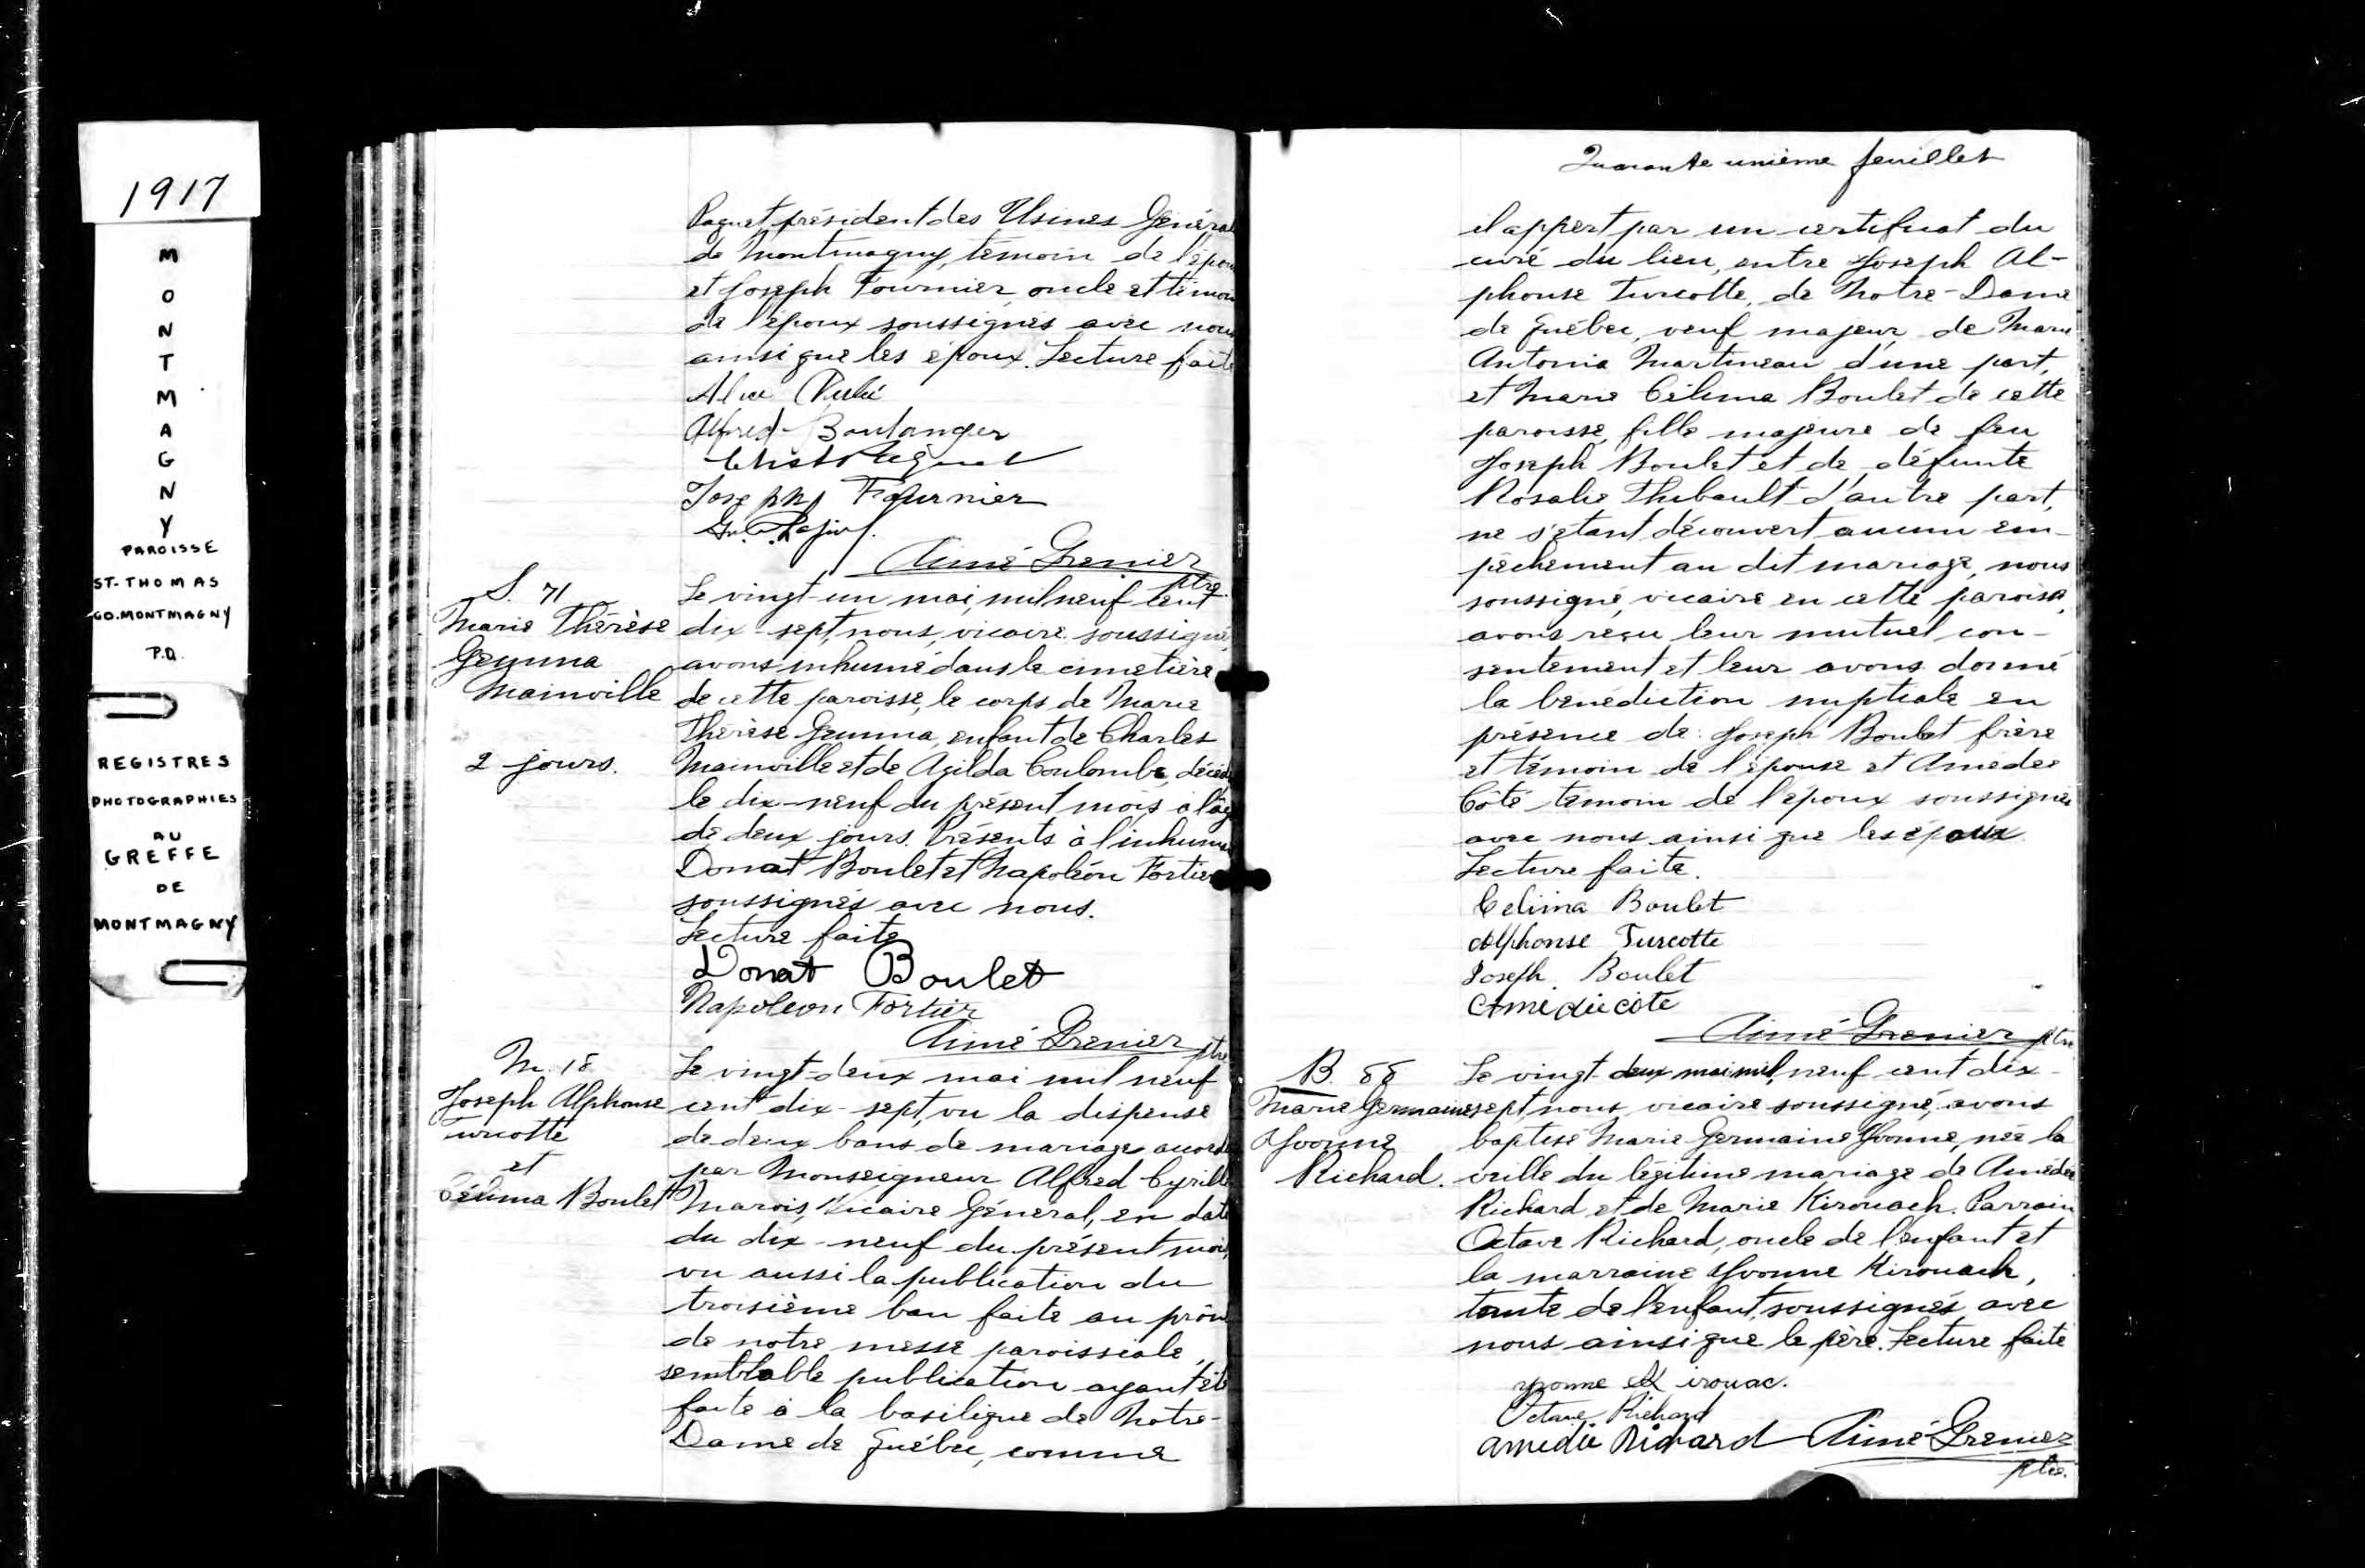 1917
M
O
N
T
M
A
G
N
Y
PAROISSE
ST-THOMAS
CO. MONTMAGNY
P.Q.
REGISTRES
PHOTOGRAPHIES
AU
GREFFE
DE
MONTMAGNY
Paquet, président des Usines Général
de Montmagny, témoin de l'épou
et Joseph Fournier, oncle et témoin
de l'époux soussignés avec nous
ainsi que les époux. Lecture faite
Alice
Alfred Boulanger
Joseph Fournier
Aimé Grenier
ptre.
S. 71
Marie Thérèse
Gemma
Mainville
2 jours.
Le vingt-un mai, mil neuf cent
dix-sept, nous, vicaire soussigné,
avons inhumé dans le cimetière
de cette paroisse, le corps de Marie
Thérèse Gemma, enfant de Charles
Mainville et de Azilda Coulombe, décédé
le dix-neuf du présent mois à l'âg
de deux jours. Présents à l'inhuma
Donat Boulet et Napoléon Fortier
soussignés avec nous.
Lecture faite
Donat Boulet
Napoleon Fortier
Aimé Grenier ptre
M. 18
Joseph Alphonse
Turcotte
et
Célima Boulet
Le vingt-deux mai mil neuf
cent dix-sept, vu la dispense
de deux bans de mariage accordé
par Monseigneur Alfred Cyrille
Marois, Vicaire Général, en date
du dix-neuf du présent mois,
vu aussi la publication du
troisième ban faite au prône
de notre messe paroissiale,
semblable publication ayant été
faite à la basilique de Notre-
Dame de Québec, comme
Quarante unième feuillet
il appert par un certificat du
curé du lieu, entre Joseph Al-
phonse Turcotte, de Notre-Dame
de Québec, veuf majeur, de Marie
Antonia Martineau d'une part,
et Marie Célima Boulet de cette
paroisse, fille majeure de feu
Joseph Boulet et de défunte
Rosalie Thibault d'autre part,
ne s'étant découvert aucun em-
pêchement au dit mariage, nous
soussigné, vicaire en cette paroisse,
avons reçu leur mutuel con-
sentement et leur avons donné
la bénédiction nuptiale en
présence de: Joseph Boulet frère
et témoin de l'épouse et Amédée
Côté témoin de l'époux soussignés
avec nous ainsi que les époux
Lecture faite.
Celima Boulet
Alphonse Turcotte
Joseph Boulet
Amédée côté
Aimé Grenier ptre
B. 88
Marie Germaine
Yvonne
Richard.
Le vingt-deux mai mil, neuf cent dix-
sept, nous, vicaire soussigné, avons
baptisé Marie Germaine Yvonne, née la
veille du légitime mariage de Amédée
Richard et de Marie Kirouach. Parrain
Octave Richard, oncle de l'enfant et
la marraine Yvonne Kirouack,
tante de l'enfant, soussignés avec
nous ainsi que le père. Lecture faite
yvonne Kirouac.
Octave Richard
amédée Richard Aimé Grenier
ptre.